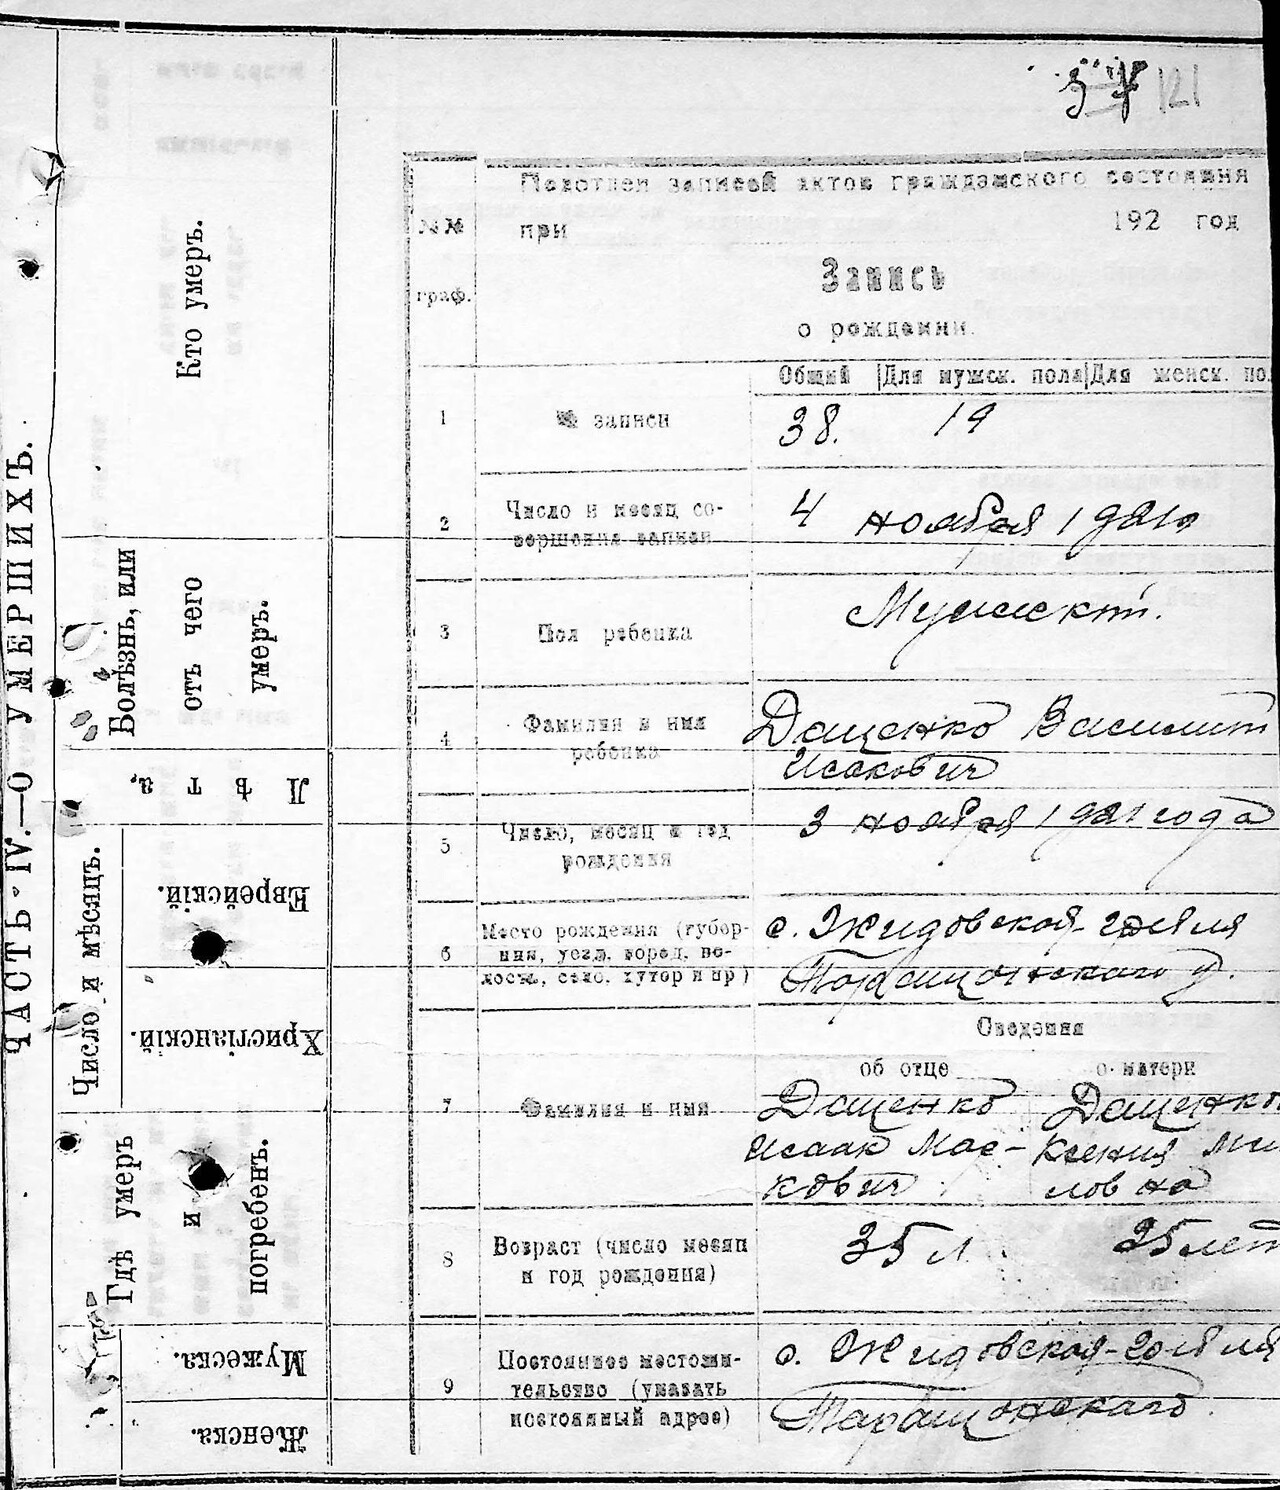 121
Подотдел записей актов гражданского состояния
№№ граф.
при 192 год
Запись
о рождении.
Общий | Для мужск. пола | Для женск. по
1 № записи 38. 19
2 Число и месяц со-
вершения записи
4 ноября 1921 г
3 Пол ребенка Мужской.
4 Фамилия и имя
ребенка
Даценко Василий
Исакович
5 Число, месяц и год
рождения
3 ноября 1921 года
6 Место рождения (губер-
ния, уезд, город, во-
лость, село, хутор и пр)
с. Жидовской-гребля
Таращанского у.
Сведения
об отце о матери
7 Фамилия и имя
Даценко
Исаак Мос-
кович
Даценко
Ксения Ми
ловна
8 Возраст (число месяц
и год рождения)
35 л. 25 лет
9 Постоянное местожи-
тельство (указать
постоянный адрес)
с. Жидовской-гребля
Таращанского.
ЧАСТЬ IV.—О УМЕРШИХЪ.
Кто умеръ.
Болѣзнь, или
отъ чего
умеръ.
Лѣта,
Число и мѣсяцъ.
Еврейскій.
Христіанскій.
Гдѣ умеръ
и
погребенъ.
Мужеска.
Женска.